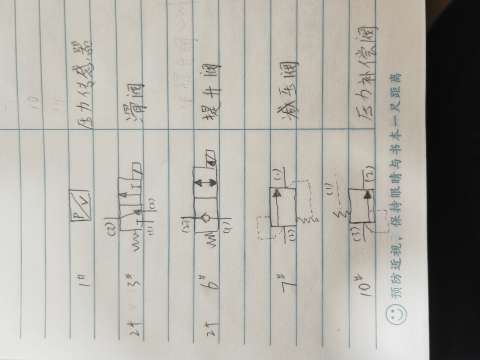 1# P V 压力传感器
2个 3# (2) (1) (3) 滑阀
2个 6# (2) (1) 提升阀
7# (2) (1) 减压阀
10# (3) (1) (2) 压力补偿阀
预防近视，保持眼睛与书本一尺距离